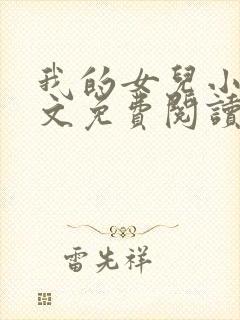 我的女兒小
文免費閱讀
雷先祥